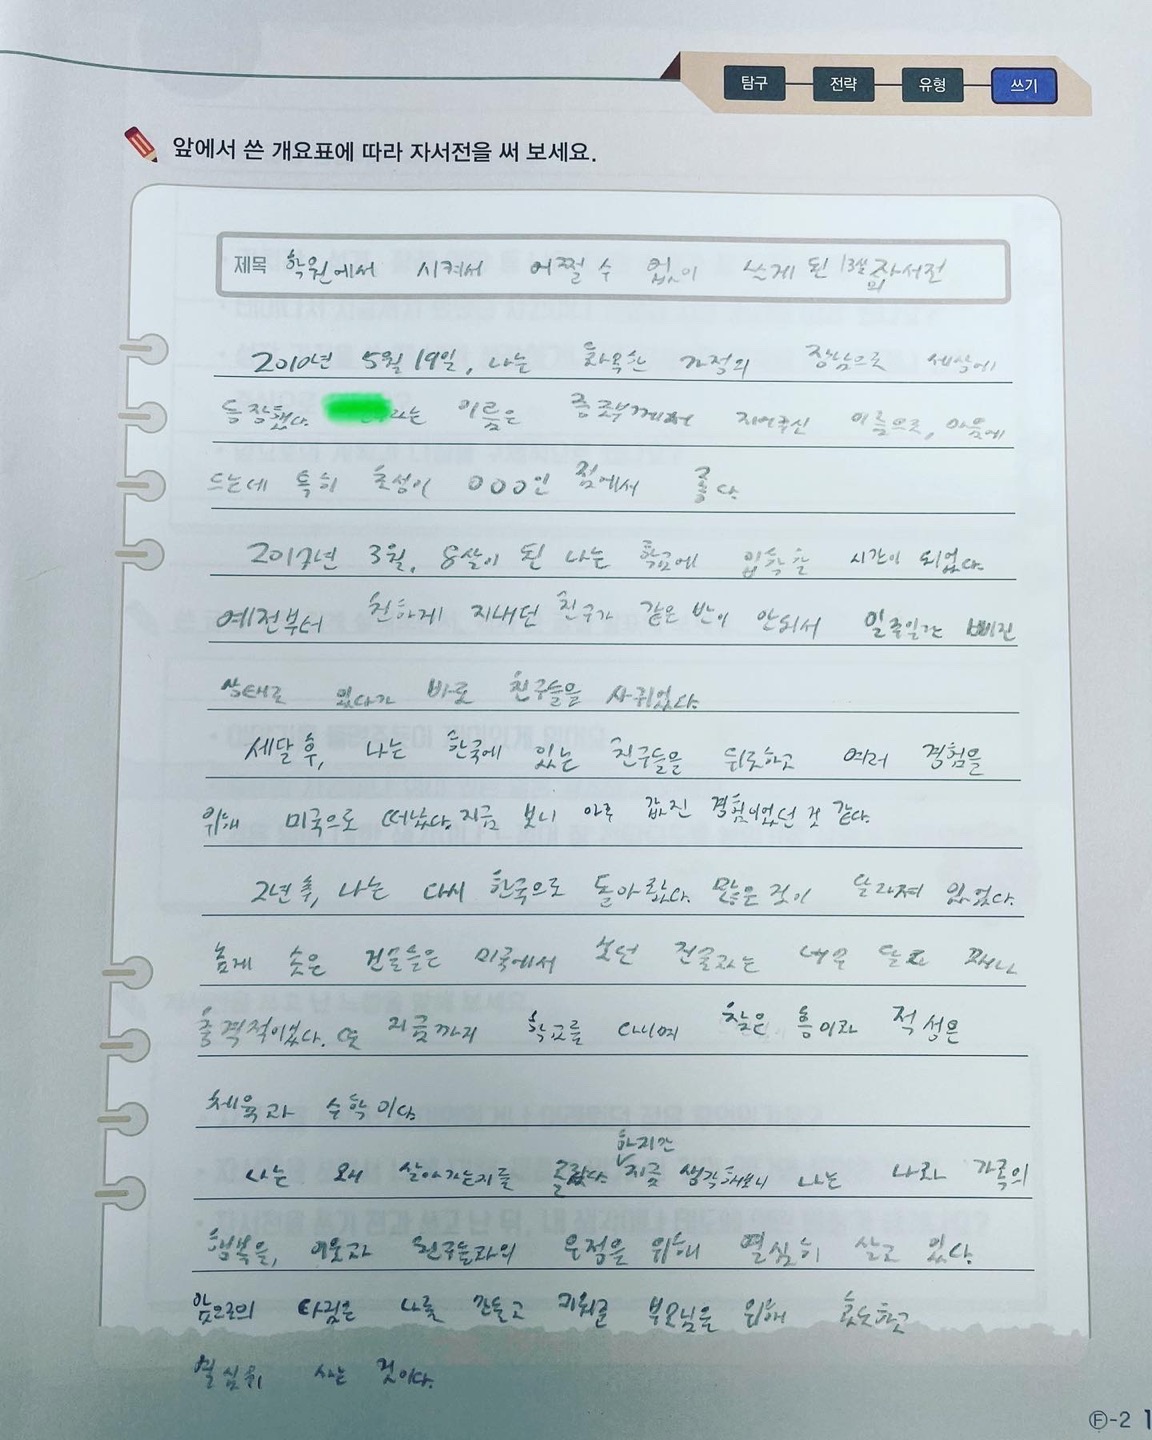 탐구 전략 유형 쓰기
앞에서 쓴 개요표에 따라 자서전을 써 보세요.
제목 학원에서 시켜서 어쩔 수 없이 쓰게 된 13살의 자서전
2010년 5월 19일, 나는 화목한 가정의 장남으로 세상에
등장했다. 라는 이름은 증조부께서 지어주신 이름으로, 마음에
드는데 특히 초성이 ㅇㅇㅇ인 점에서 좋다.
2017년 3월, 8살이 된 나는 학교에 입학할 시간이 되었다.
예전부터 친하게 지내던 친구가 같은 반이 안되서 일주일간 삐진
상태로 있다가 바로 친구들을 사귀었다.
세달 후, 나는 한국에 있는 친구들을 뒤로하고 여러 경험을
위해 미국으로 떠났다. 지금 보니 아주 값진 경험이었던 것 같다.
2년 후, 나는 다시 한국으로 돌아왔다. 많은 것이 달라져 있었다.
높게 솟은 건물들은 미국에서 보던 건물과는 너무 달라 꽤나
충격적이었다. 또 지금까지 학교를 다니며 찾은 흥미과 적성은
체육과 수학이다.
나는 왜 살아가는지를 몰랐다. 하지만 지금 생각해보니 나는 나와 가족의
행복을, 이웃과 친구들과의 우정을 위해 열심히 살고 있다.
앞으로의 다짐은 나를 만들고 키워준 부모님을 위해 효도하고
열심히 사는 것이다.
Ⓕ-2 1